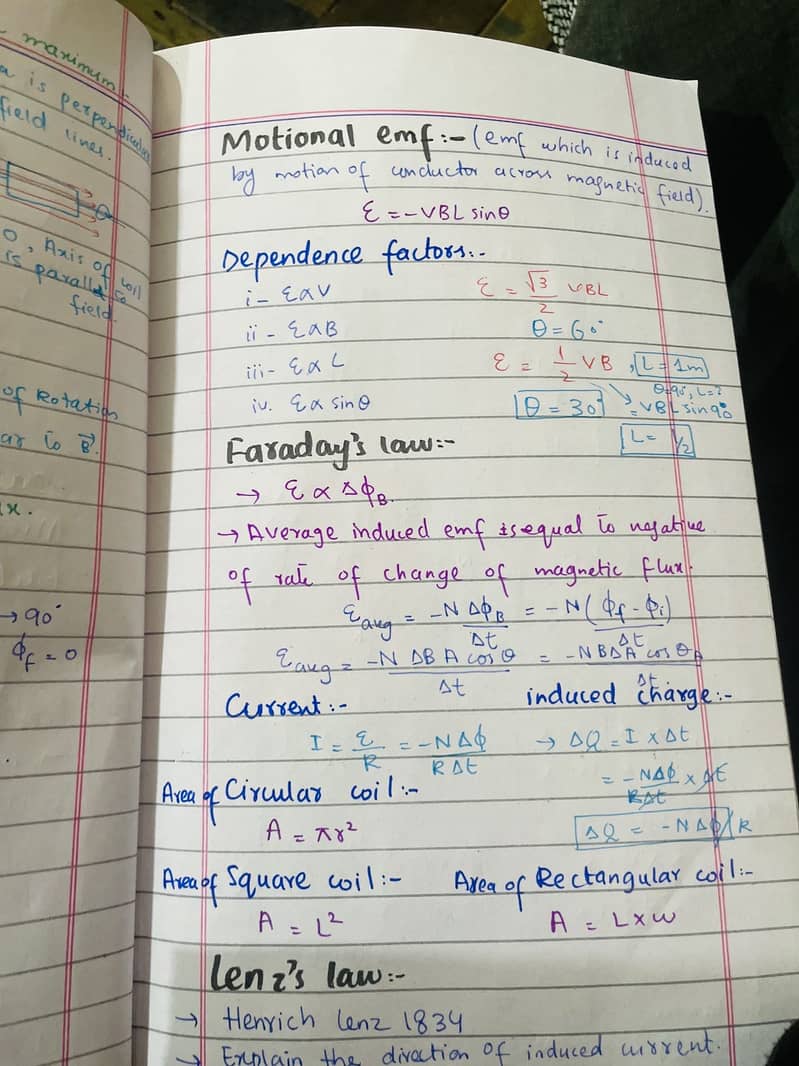 maximum.
is perpendicular
field lines.
0, Axis of coil
is parallel to
field.
of Rotation
ar to B⃗.
x.
→ 90°
ϕf = 0
Motional emf:- (emf which is induced
by motion of conductor across magnetic field).
Ɛ = -VBL sinθ
Dependence factors:-
i - Ɛ α V
Ɛ = √3/2 VBL
ii - Ɛ α B
θ = 60°
iii - Ɛ α L
Ɛ = 1/2 VB , L = 1m
θ=90°, L=?
iv. Ɛ α sinθ
θ = 30°
= VBL sin90°
L = 1/2
Faraday's law:-
→ Ɛ ∝ ΔϕB.
→ Average induced emf is equal to negative
of rate of change of magnetic flux.
Ɛavg = -NΔϕB/Δt = -N(ϕf - ϕi)/Δt
Ɛavg = -N ΔB A cosθ/Δt = -N BΔA cosθ/Δt
Current:-
induced charge:-
I = Ɛ/R = -NΔϕ/RΔt
→ ΔQ = I × Δt
= -NΔϕ/RΔt × Δt
ΔQ = -NΔϕ/R
Area of Circular coil:-
A = πr²
Area of Square coil:-
Area of Rectangular coil:-
A = L²
A = L×w
Lenz's law:-
→ Henrich Lenz 1834
→ Explain the direction of induced current.